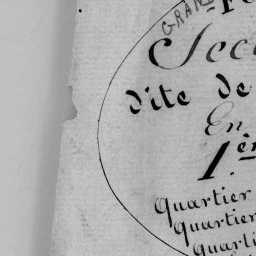 GRAN
Sec
dite de
En
1.èr
Quartier
Quartier
Quarti